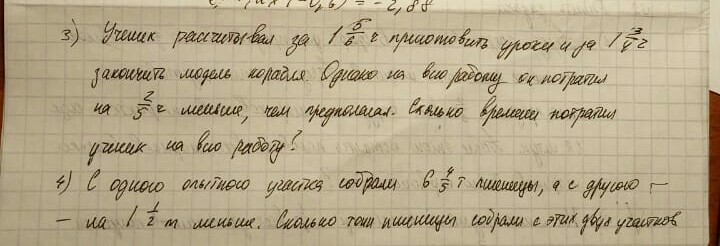 3) Ученик рассчитывал за 1 5/6 ч приготовить уроки и за 1 3/4 ч
закончить модель корабля. Однако на всю работу он потратил
на 2/5 ч меньше, чем предполагал. Сколько времени потратил
ученик на всю работу?
4) С одного опытного участка собрали 6 4/5 т пшеницы, а с другого –
– на 1 1/2 т меньше. Сколько тонн пшеницы собрали с этих двух участков